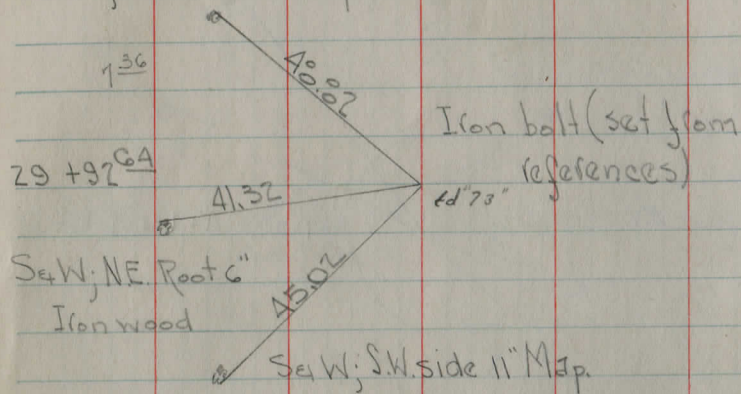 40.02
7 36
Iron bolt (set from
references)
29 +92 64
41.32
fd "73"
S&W; N.E. Root 6"
Iron wood
45.02
S&W; S.W. side 11" Map.